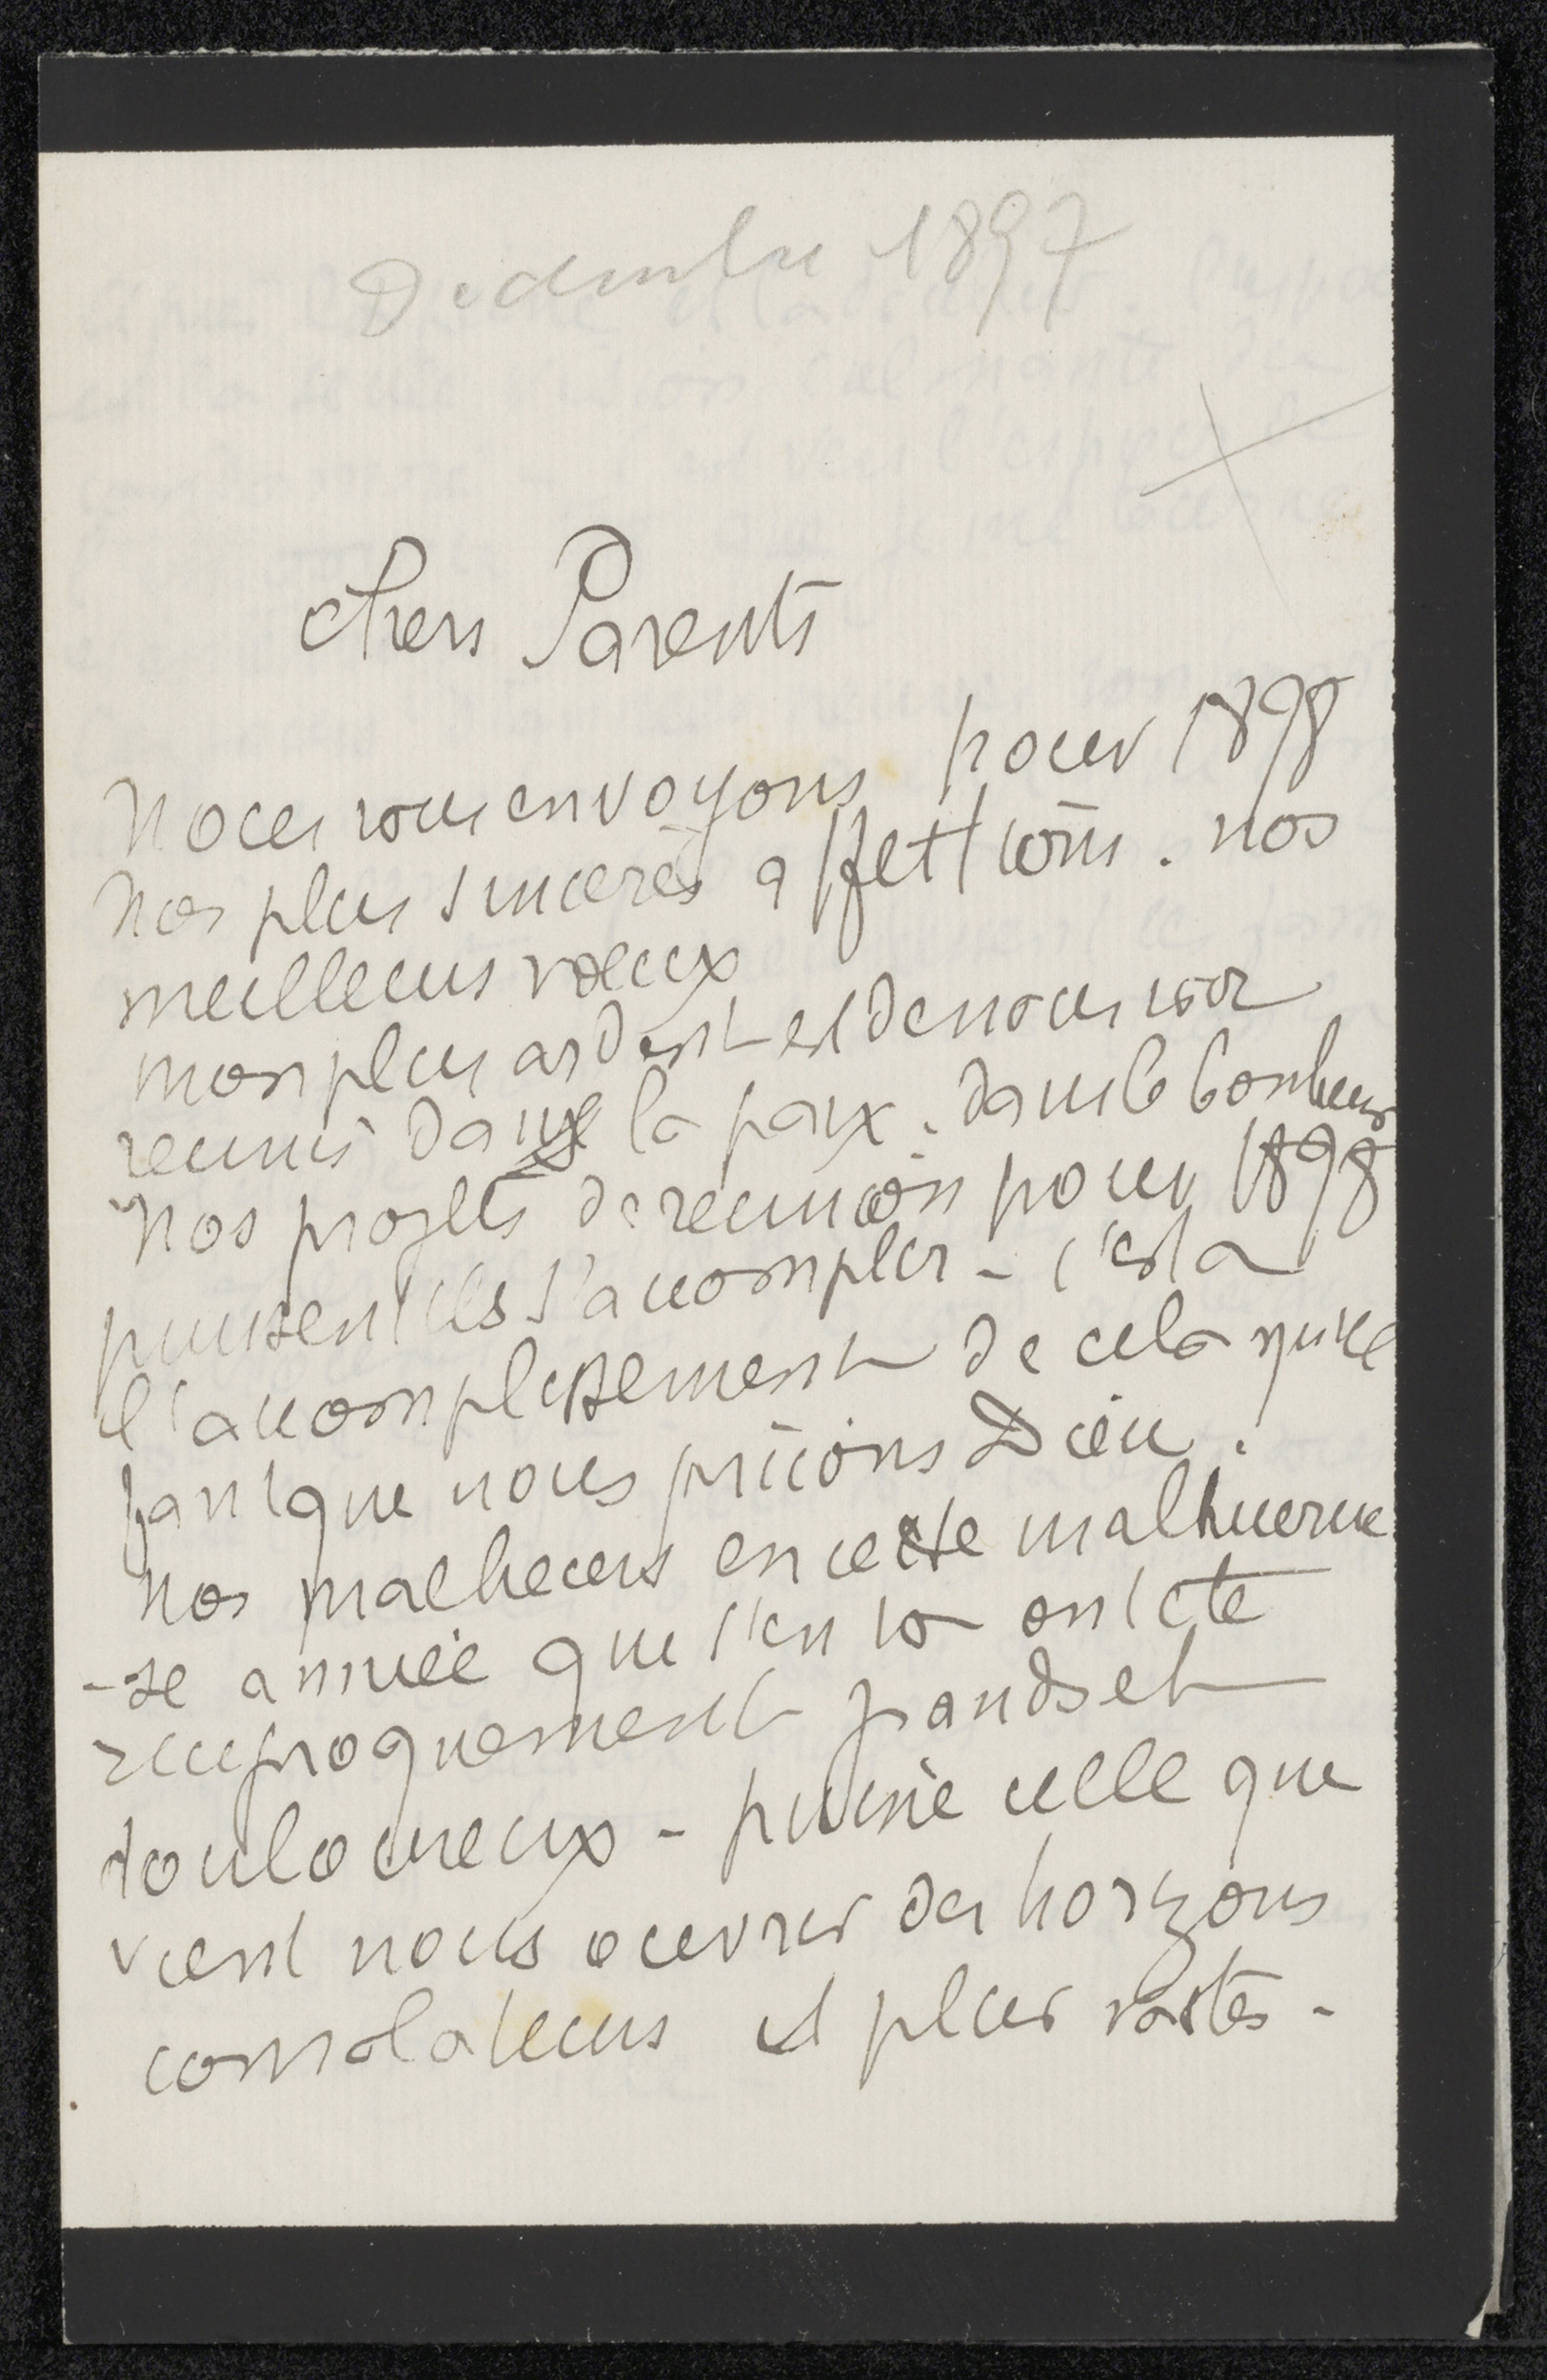 Decembre 1897
chers Parents
Nous vous envoyons pour 1898
Nos plus sinceres affections. nos
meilleurs vœux
mon plus ardent est de nous voir
reunis dans la paix. dans le bonheur
Nos projets de reunion pour 1898
puissent ils s'accomplir - c'est a
l'accomplissement de cela qu'il
faut que nous priions Dieu.
Nos malheurs en cette malheureu
-se année que s'en va ont ete
reciproquement grands et
douloureux - puisse celle que
vient nous ouvrir des horizons
consolateurs et plus vastes -